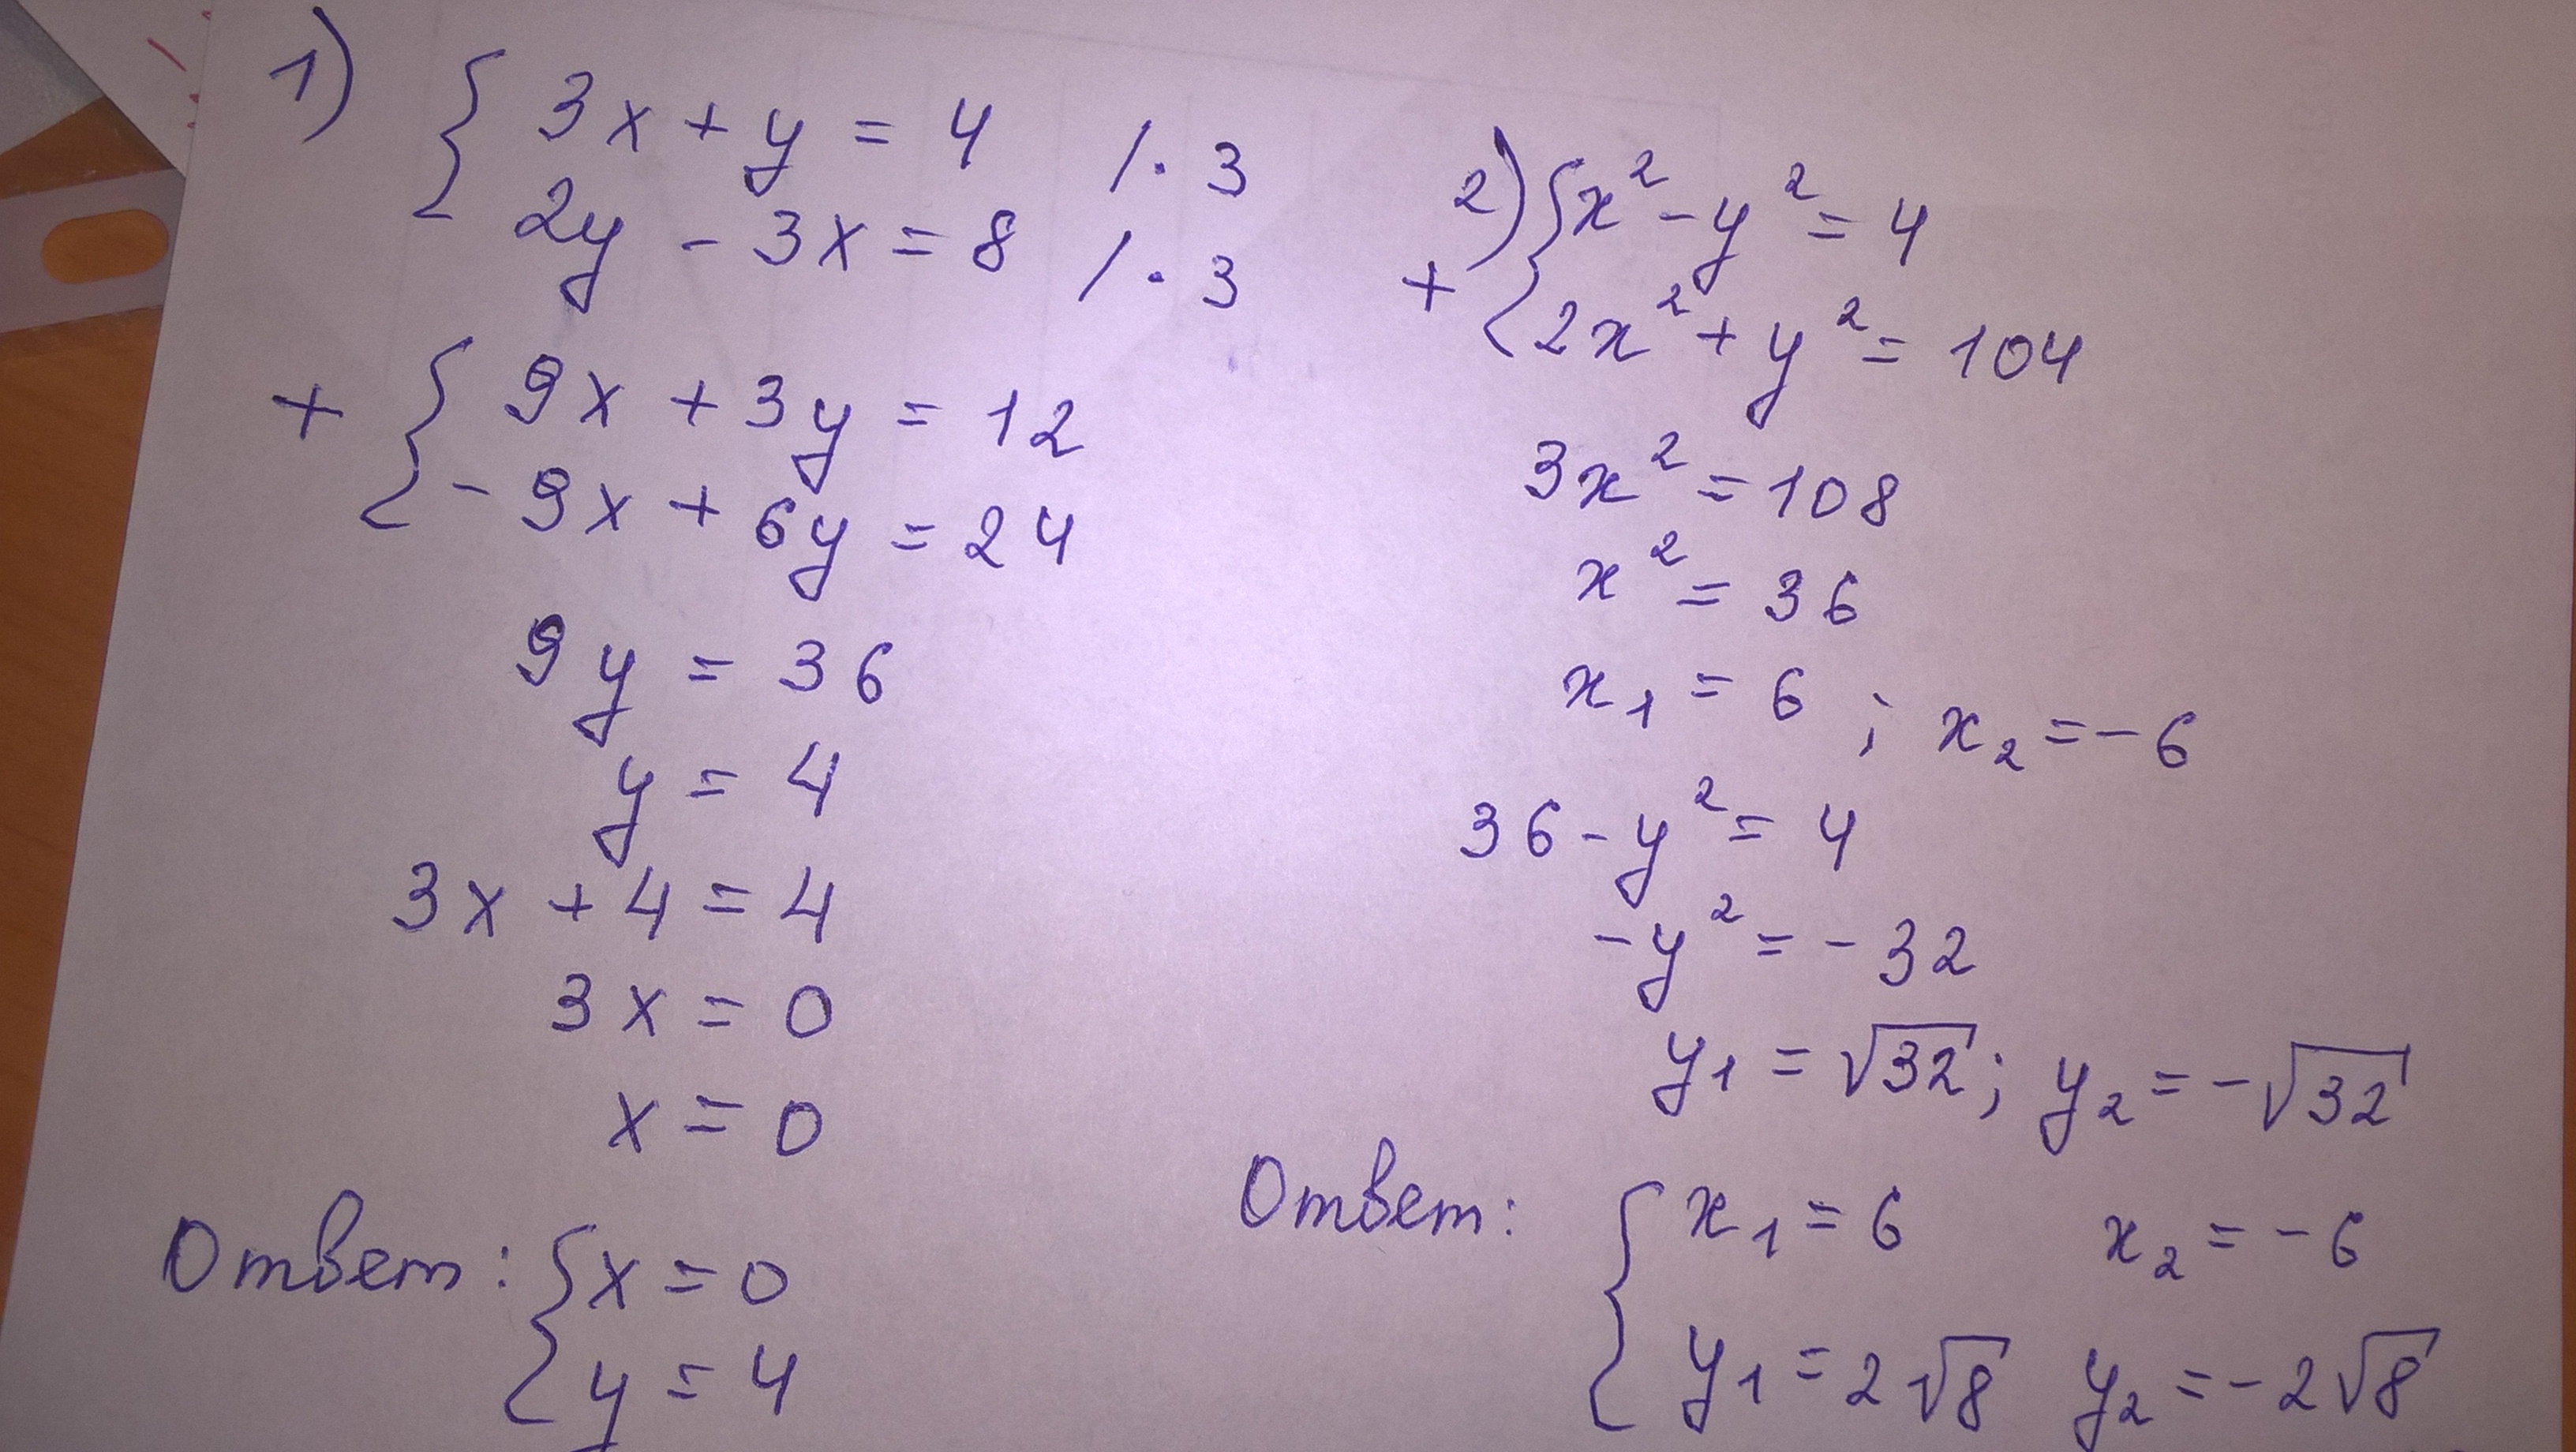 1) { 3x + y = 4 / · 3
2y - 3x = 8 / · 3
+ { 9x + 3y = 12
- 9x + 6y = 24
9y = 36
y = 4
3x + 4 = 4
3x = 0
x = 0
Ответ: { x = 0
y = 4
2) { x² - y² = 4
+ 2x² + y² = 104
3x² = 108
x² = 36
x₁ = 6 ; x₂ = - 6
36 - y² = 4
- y² = - 32
y₁ = √32 ; y₂ = - √32
Ответ: { x₁ = 6 x₂ = - 6
y₁ = 2√8 y₂ = - 2√8